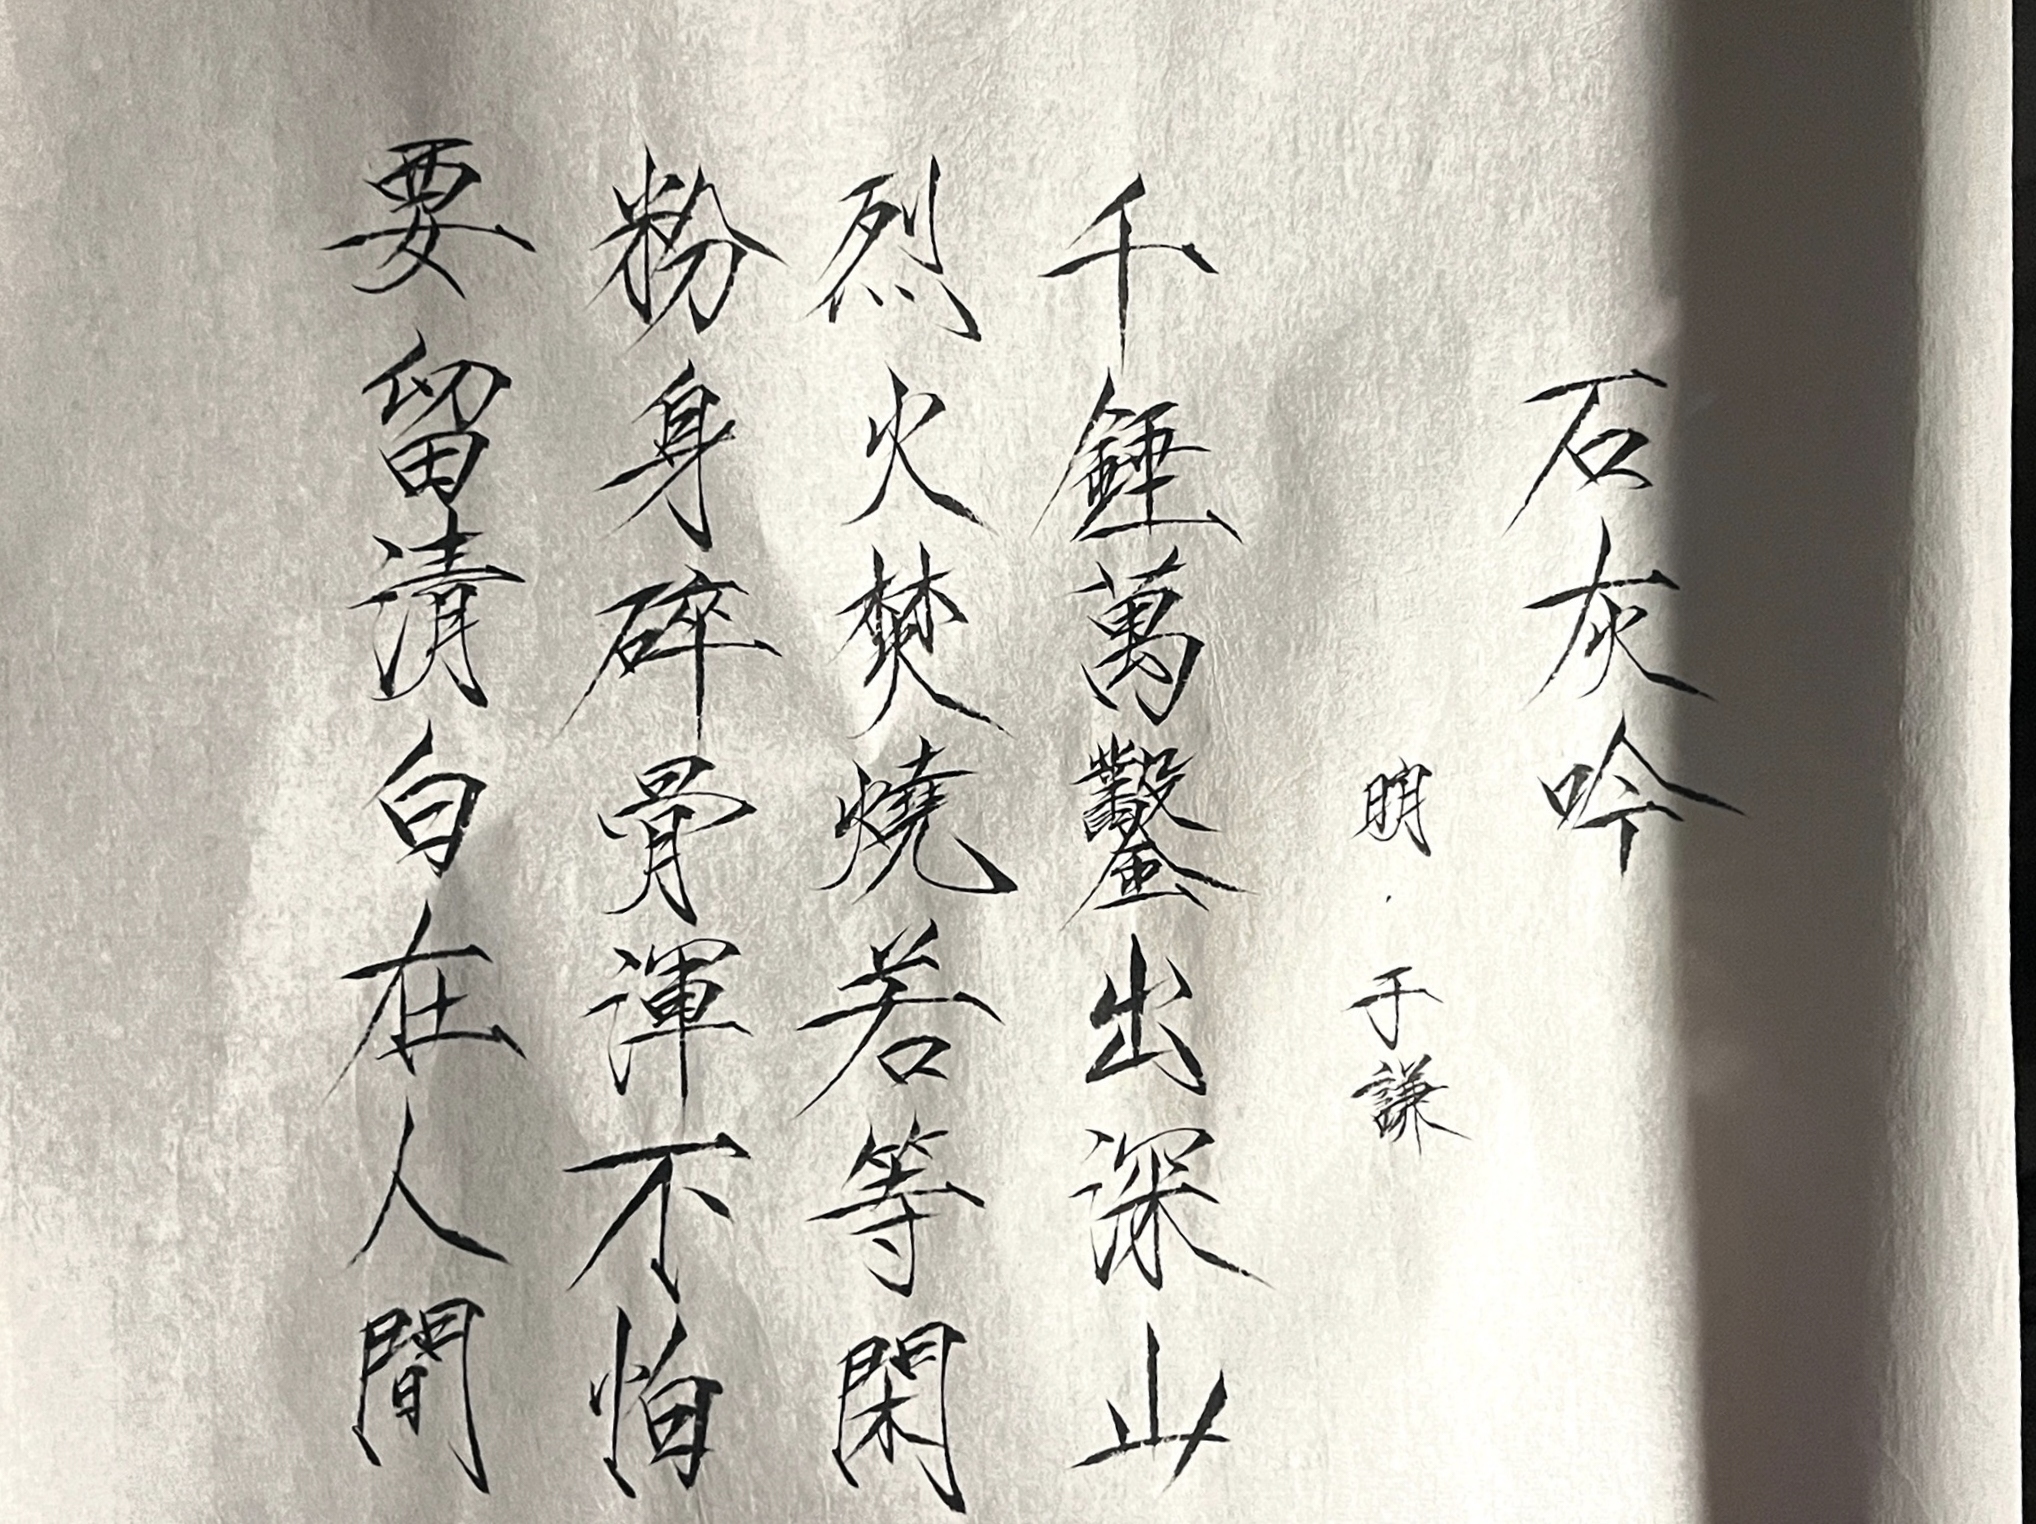 石灰吟
明·于謙
千錘萬鑿出深山
烈火焚燒若等閑
粉身碎骨渾不怕
要留清白在人間